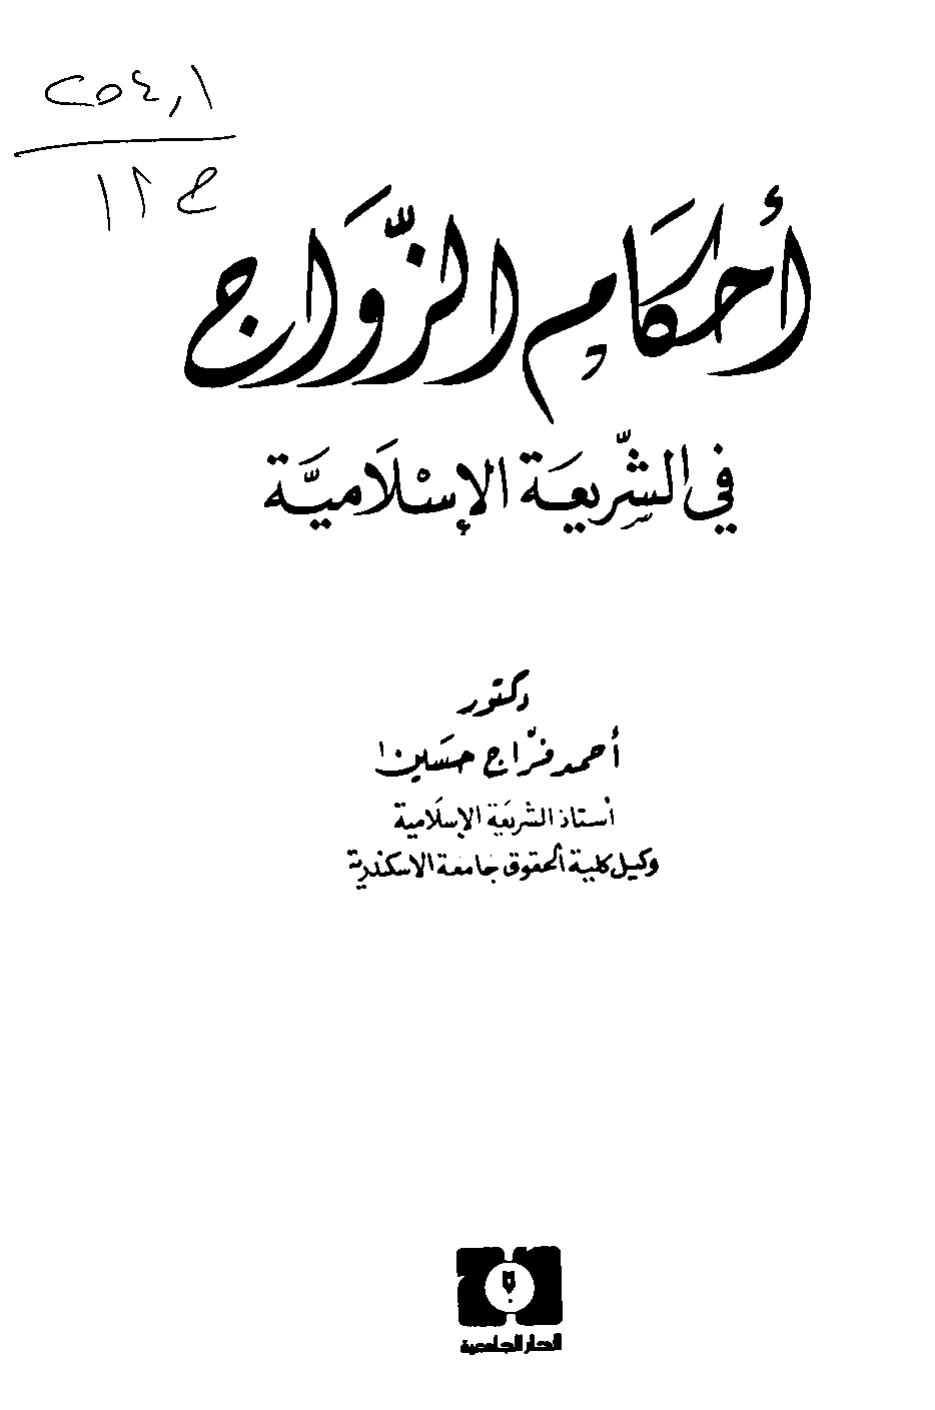 ٢٥٤,١
ح ١٢
أحكام الزَّوَاج
في الشَّرِيعَة الإِسْلَاميَّة
دكتور
أحمد فرَّاج حسَين
أستاذ الشريعَة الإسلَامية
وكيل كلية الحقوق جامعة الاسكندرية
الدار الجامعية